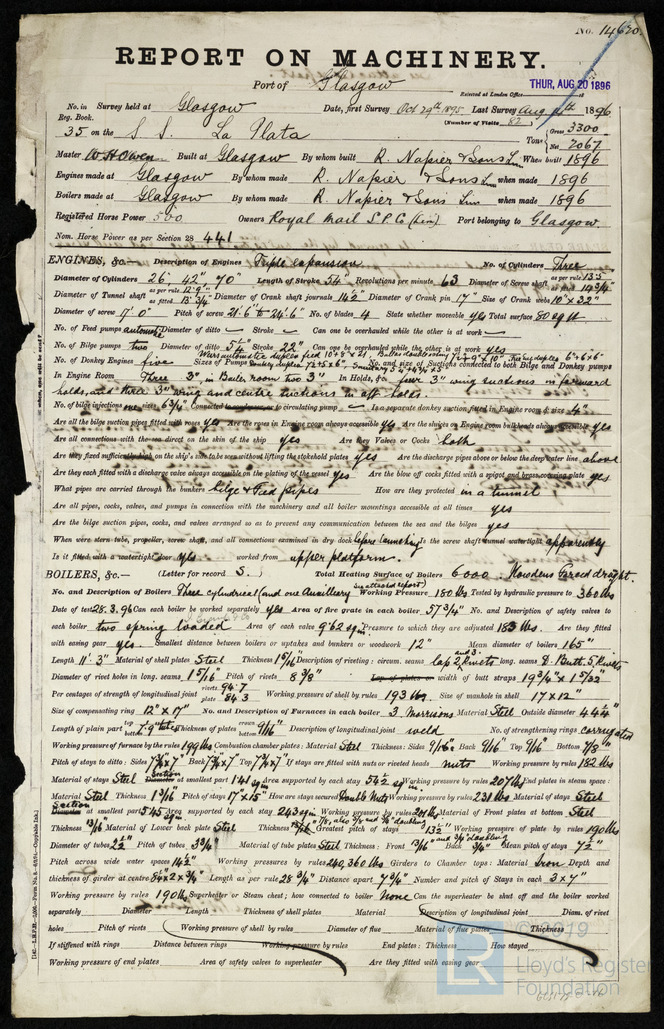 No. 14620
REPORT ON MACHINERY.
Port of Glasgow
Received at London Office THUR, AUG 20 1896 18
No. in Survey held at Glasgow Date, first Survey Oct 29th 1895 Last Survey Aug 1896
Reg. Book. (Number of Visits 82)
35 on the S. S. La Plata Tons Gross 3300 Net 2067
Master W H Owen Built at Glasgow By whom built R. Napier & Sons Lim When built 1896
Engines made at Glasgow By whom made R. Napier & Sons Lim when made 1896
Boilers made at Glasgow By whom made R. Napier & Sons Lim when made 1896
Registered Horse Power 500 Owners Royal Mail S.P. Co (Lim) Port belonging to Glasgow.
Nom. Horse Power as per Section 28 441
ENGINES, &c.— Description of Engines Triple expansion No. of Cylinders Three
Diameter of Cylinders 26" 42" 70" Length of Stroke 54" Revolutions per minute 63 Diameter of Screw shaft as per rule 13.5 as fitted 14 3/4"
Diameter of Tunnel shaft as per rule 12.9" as fitted 13 3/4" Diameter of Crank shaft journals 14 1/2" Diameter of Crank pin 17" Size of Crank webs 10" x 32"
Diameter of screw 17' 0" Pitch of screw 21'.6" to 24'.6" No. of blades 4 State whether moveable yes Total surface 80 sq ft
No. of Feed pumps automatic Diameter of ditto — Stroke — Can one be overhauled while the other is at work —
No. of Bilge pumps two Diameter of ditto 5 1/2" Stroke 22" Can one be overhauled while the other is at work yes
No. of Donkey Engines five Sizes of Pumps No. and size of Suctions connected to both Bilge and Donkey pumps
In Engine Room Three 3", in Boiler room two 3" In Holds, &c. four 3" wing suctions in forward
holds, and three 3" wing and centre suctions in aft holds.
No. of bilge injections one sizes 6 3/4" Connected to condenser or to circulating pump — Is a separate donkey suction fitted in Engine room & size 4"
Are all the bilge suction pipes fitted with roses yes Are the roses in Engine room always accessible yes Are the sluices on Engine room bulkheads always accessible yes
Are all connections with the sea direct on the skin of the ship yes Are they Valves or Cocks both
Are they fixed sufficiently high on the ship's side to be seen without lifting the stokehold plates yes Are the discharge pipes above or below the deep water line above
Are they each fitted with a discharge valve always accessible on the plating of the vessel yes Are the blow off cocks fitted with a spigot and brass covering plate yes
What pipes are carried through the bunkers bilge & Feed pipes How are they protected in a tunnel
Are all pipes, cocks, valves, and pumps in connection with the machinery and all boiler mountings accessible at all times yes
Are the bilge suction pipes, cocks, and valves arranged so as to prevent any communication between the sea and the bilges yes
When were stern tube, propeller, screw shaft, and all connections examined in dry dock before launching Is the screw shaft tunnel watertight apparently
Is it fitted with a watertight door yes worked from upper platform.
BOILERS, &c.— (Letter for record S.) Total Heating Surface of Boilers 6000. Howdens Forced draught.
No. and Description of Boilers Three cylindrical (and one Auxillary see attached report) Working Pressure 180 lbs Tested by hydraulic pressure to 360 lbs
Date of test 28.3.96 Can each boiler be worked separately yes Area of fire grate in each boiler 57 3/4 ft No. and Description of safety valves to
each boiler two spring loaded Area of each valve 9.62 sq in Pressure to which they are adjusted 185 lbs. Are they fitted
with easing gear yes. Smallest distance between boilers or uptakes and bunkers or woodwork 12" Mean diameter of boilers 165"
Length 11'. 3" Material of shell plates Steel Thickness 1 5/16" Description of riveting: circum. seams lap 2 and 3 Rivets long. seams d. Butt. 5 Rivets
Diameter of rivet holes in long. seams 1 5/16" Pitch of rivets 8 3/8" Lap of plates or width of butt straps 19 3/4" x 1 5/32"
Per centages of strength of longitudinal joint rivets 94.7 plate 84.3 Working pressure of shell by rules 193 lbs. Size of manhole in shell 17 x 12"
Size of compensating ring 12" x 17" No. and Description of Furnaces in each boiler 3 Morrisons Material Steel Outside diameter 44 1/4"
Length of plain part top bottom Thickness of plates crown bottom 9/16" Description of longitudinal joint weld No. of strengthening rings corrugated
Working pressure of furnace by the rules 199 lbs Combustion chamber plates: Material Steel Thickness: Sides 9/16" Back 9/16 Top 9/16" Bottom 7/8 in
Pitch of stays to ditto: Sides 7 3/4" x 7" Back 7 3/4" x 7" Top 7 3/4" x 7" If stays are fitted with nuts or riveted heads nuts Working pressure by rules 182 lbs
Material of stays Steel Section Diameter at smallest part 1.41 sq in Area supported by each stay 54 1/2 sq in. Working pressure by rules 207 lbs End plates in steam space:
Material Steel Thickness 1 3/16" Pitch of stays 17" x 15" How are stays secured Double Nuts Working pressure by rules 231 lbs Material of stays Steel
Section Diameter at smallest part 5.45 Area supported by each stay 243 sq in Working pressure by rules Material of Front plates at bottom Steel
Thickness 13/16" Material of Lower back plate Steel Thickness Greatest pitch of stays 13 1/2" Working pressure of plate by rules 190 lbs
Diameter of tubes 2 1/2" Pitch of tubes 3 3/4" Material of tube plates Steel Thickness: Front 13/16" and 3/4 doubling Back 3/4" Mean pitch of stays 7 1/2"
Pitch across wide water spaces 14 1/2" Working pressures by rules 240, 360 lbs Girders to Chamber tops: Material Iron Depth and
thickness of girder at centre 8 1/2 x 2 x 3/4" Length as per rule 28 3/4" Distance apart 7 3/4" Number and pitch of Stays in each 3 x 7"
Working pressure by rules 190 lbs Superheater or Steam chest; how connected to boiler None Can the superheater be shut off and the boiler worked
separately Diameter Length Thickness of shell plates Material Description of longitudinal joint Diam. of rivet
holes Pitch of rivets Working pressure of shell by rules Diameter of flue Material of flue plates Thickness
If stiffened with rings Distance between rings Working pressure by rules End plates: Thickness How stayed
Working pressure of end plates Area of safety valves to superheater Are they fitted with easing gear
© 2019
LR
Lloyd's Register
Foundation